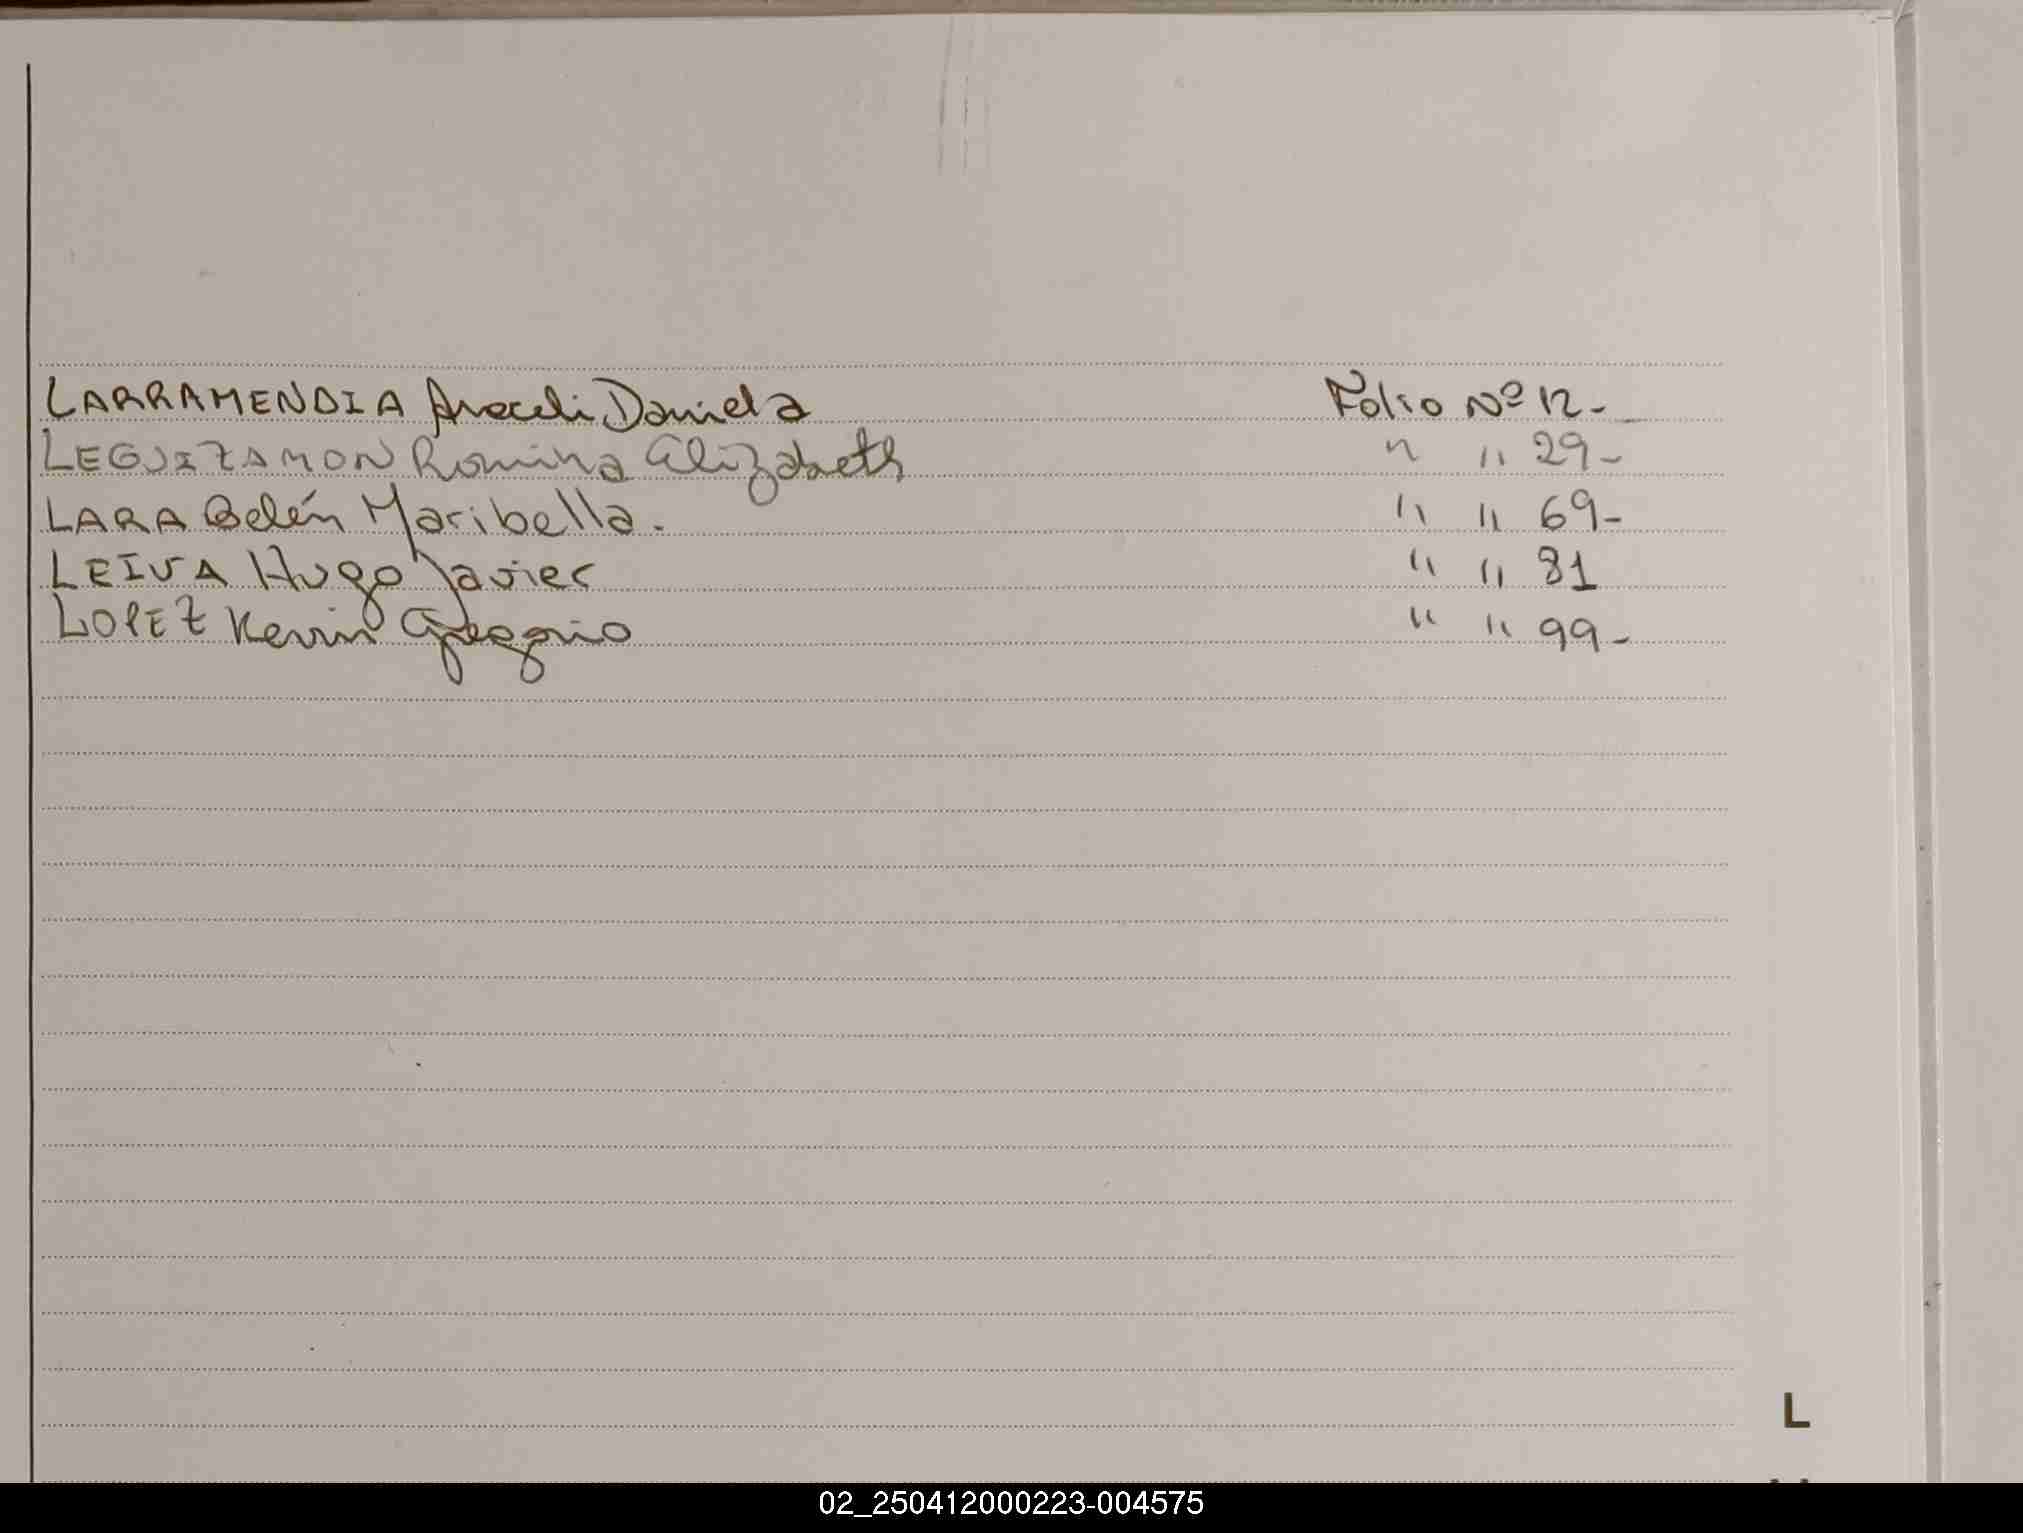 LARRAMENDIA Araceli Daniela Folio Nº 12-
LEGUIZAMON Romina Elizabeth " " 29-
LARA Belén Maribella. " " 69-
LEIVA Hugo Javier " " 81
LOPEZ Kevin Gregorio " " 99-
L
02_250412000223-004575